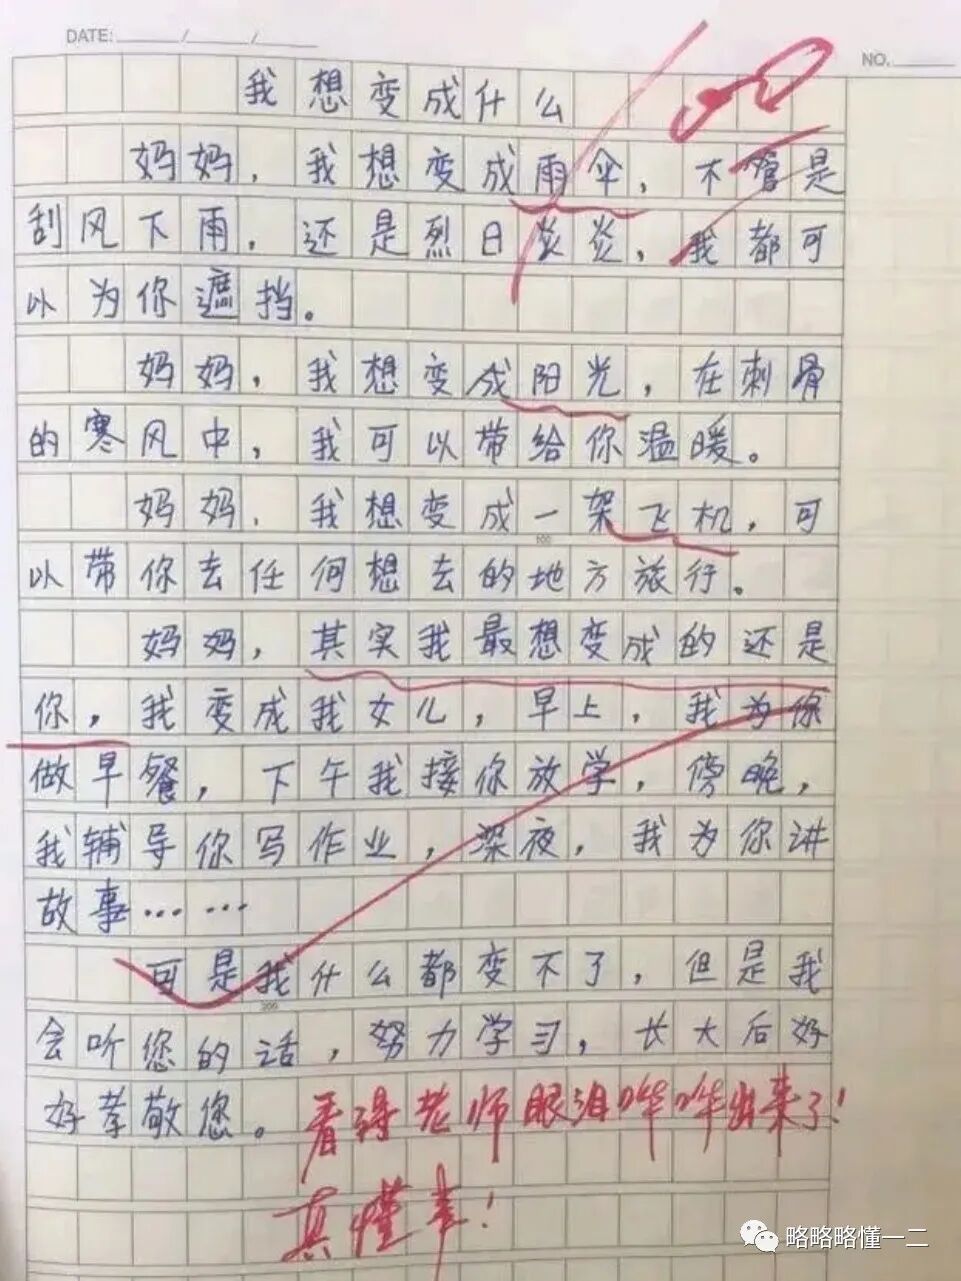 DATE: / /
NO.
100
我想变成什么
妈妈，我想变成雨伞，不管是
刮风下雨，还是烈日炎炎，我都可
以为你遮挡。
妈妈，我想变成阳光，在刺骨
的寒风中，我可以带给你温暖。
妈妈，我想变成一架飞机，可
100
以带你去任何想去的地方旅行。
妈妈，其实我最想变成的还是
你，我变成我女儿，早上，我为你
做早餐，下午我接你放学，傍晚，
我辅导你写作业，深夜，我为你讲
故事……
可是我什么都变不了，但是我
200
会听您的话，努力学习，长大后好
好孝敬您。
看得老师眼泪哗哗出来了！
真懂事！
略略略懂一二